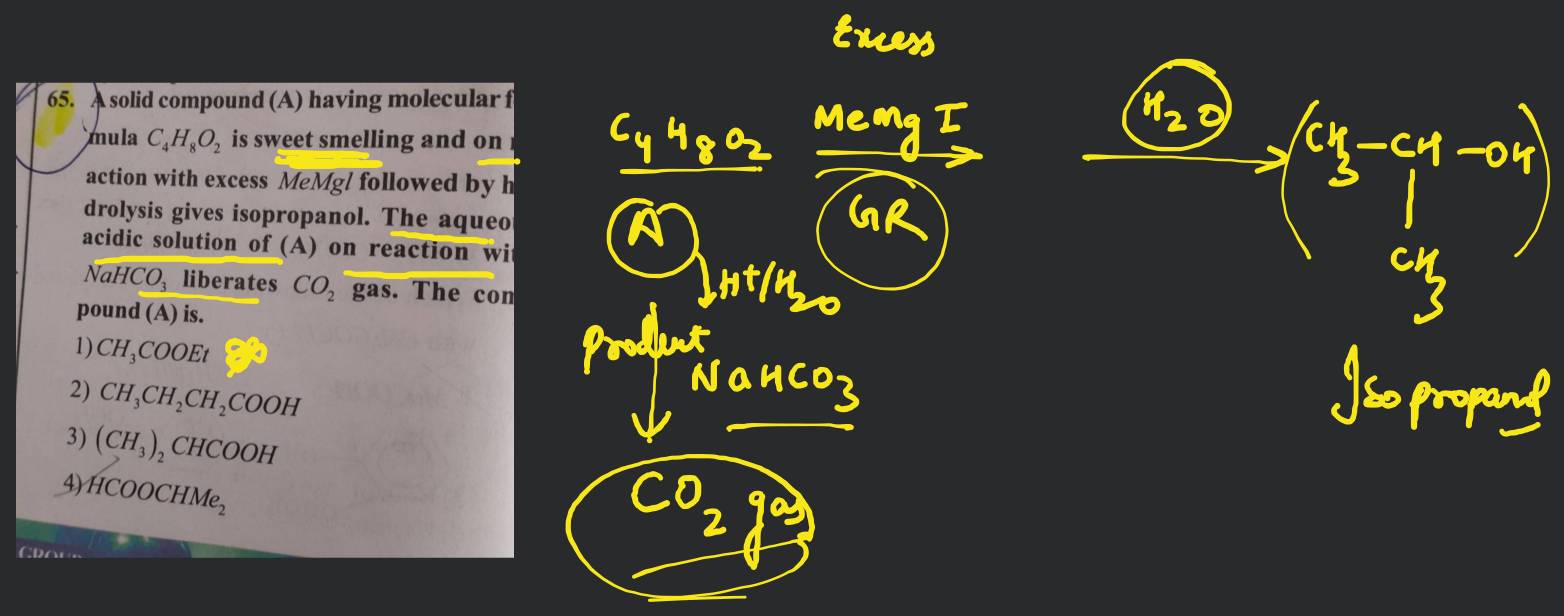 65. A solid compound (A) having molecular f
mula C₄H₈O₂ is sweet smelling and on r
action with excess MeMgl followed by h
drolysis gives isopropanol. The aqueo
acidic solution of (A) on reaction wi
NaHCO₃ liberates CO₂ gas. The com
pound (A) is.
1) CH₃COOEt
2) CH₃CH₂CH₂COOH
3) (CH₃)₂ CHCOOH
4) HCOOCHMe₂
GROU
Excess
C₄H₈O₂
MeMg I
H₂O
CH₃-CH-OH
CH₃
A
GR
H+/H₂O
product
NaHCO₃
CO₂ gas
Isopropanol